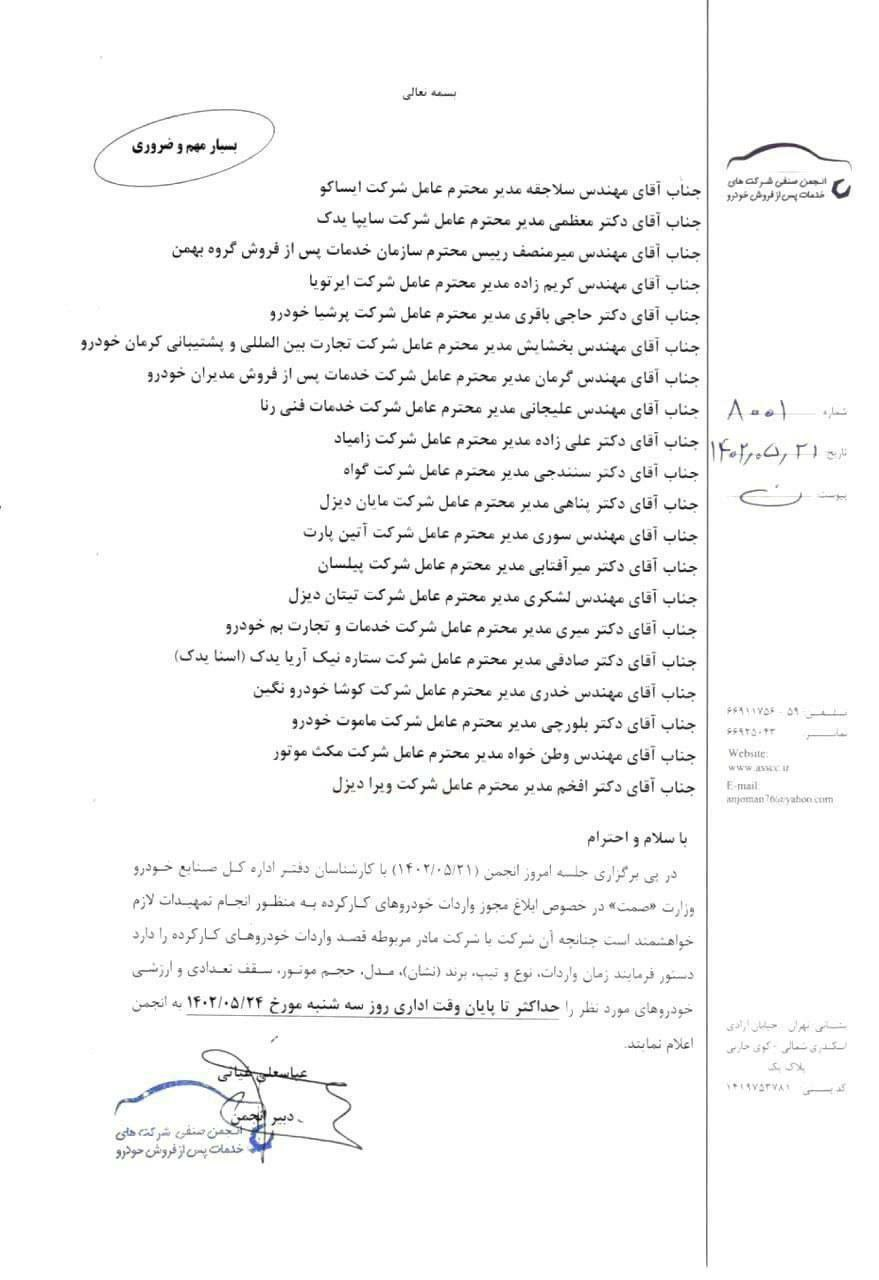 بسمه تعالی
بسیار مهم و ضروری
انجمن صنفی شرکت های
خدمات پس از فروش خودرو
جناب آقای مهندس سلاجقه مدیر محترم عامل شرکت ایساکو
جناب آقای دکتر معظمی مدیر محترم عامل شرکت سایپا یدک
جناب آقای مهندس میرمنصف رییس محترم سازمان خدمات پس از فروش گروه بهمن
جناب آقای مهندس کریم زاده مدیر محترم عامل شرکت ایرتویا
جناب آقای دکتر حاجی باقری مدیر محترم عامل شرکت پرشیا خودرو
جناب آقای مهندس بخشایش مدیر محترم عامل شرکت تجارت بین المللی و پشتیبانی کرمان خودرو
جناب آقای مهندس گرمان مدیر محترم عامل شرکت خدمات پس از فروش مدیران خودرو
جناب آقای مهندس علیجانی مدیر محترم عامل شرکت خدمات فنی رنا
جناب آقای دکتر علی زاده مدیر محترم عامل شرکت زامیاد
جناب آقای دکتر سنندجی مدیر محترم عامل شرکت گواه
جناب آقای دکتر پناهی مدیر محترم عامل شرکت مایان دیزل
جناب آقای مهندس سوری مدیر محترم عامل شرکت آتین پارت
جناب آقای دکتر میرآفتابی مدیر محترم عامل شرکت پیلسان
جناب آقای مهندس لشکری مدیر محترم عامل شرکت تیتان دیزل
جناب آقای دکتر میری مدیر محترم عامل شرکت خدمات و تجارت بم خودرو
جناب آقای دکتر صادقی مدیر محترم عامل شرکت ستاره نیک آریا یدک (اسنا یدک)
جناب آقای مهندس خدری مدیر محترم عامل شرکت کوشا خودرو نگین
جناب آقای دکتر بلورچی مدیر محترم عامل شرکت ماموت خودرو
جناب آقای مهندس وطن خواه مدیر محترم عامل شرکت مکث موتور
جناب آقای دکتر افخم مدیر محترم عامل شرکت ویرا دیزل
شماره ۸۰۰۱
تاریخ ۱۴۰۲,۰۵,۲۱
پیوست
تلفن: ۵۹ - ۶۶۹۱۱۷۵۶
نمابر ۶۶۹۲۵۰۴۳
Website:
www.asscc.ir
E-mail:
anjoman76@yahoo.com
با سلام و احترام
در پی برگزاری جلسه امروز انجمن (۱۴۰۲/۰۵/۲۱) با کارشناسان دفتر اداره کل صنایع خودرو
وزارت «صمت» در خصوص ابلاغ مجوز واردات خودروهای کارکرده به منظور انجام تمهیدات لازم
خواهشمند است چنانچه آن شرکت یا شرکت مادر مربوطه قصد واردات خودروهای کارکرده را دارد
دستور فرمایند زمان واردات، نوع و تیپ، برند (نشان)، مدل، حجم موتور، سقف تعدادی و ارزشی
خودروهای مورد نظر را حداکثر تا پایان وقت اداری روز سه شنبه مورخ ۱۴۰۲/۰۵/۲۴ به انجمن
اعلام نمایند.
عباسعلی غیاثی
دبیر انجمن
انجمن صنفی شرکت های
خدمات پس از فروش خودرو
نشانی: تهران - خیابان آزادی
اسکندری شمالی - کوی
پلاک یک
کد پستی: ۱۴۱۹۷۵۳۷۸۱